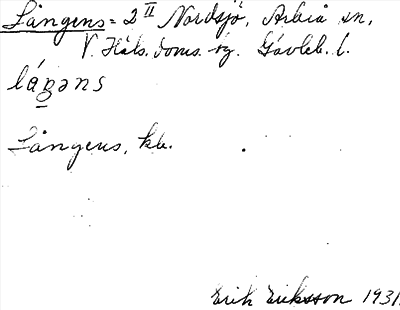 Långens = 2 II Nordsjö, Arbrå sn,
V. Häls. doms. og. Gävleb. l.
lágəns
Långens, kb.
Erik Eriksson 1931.